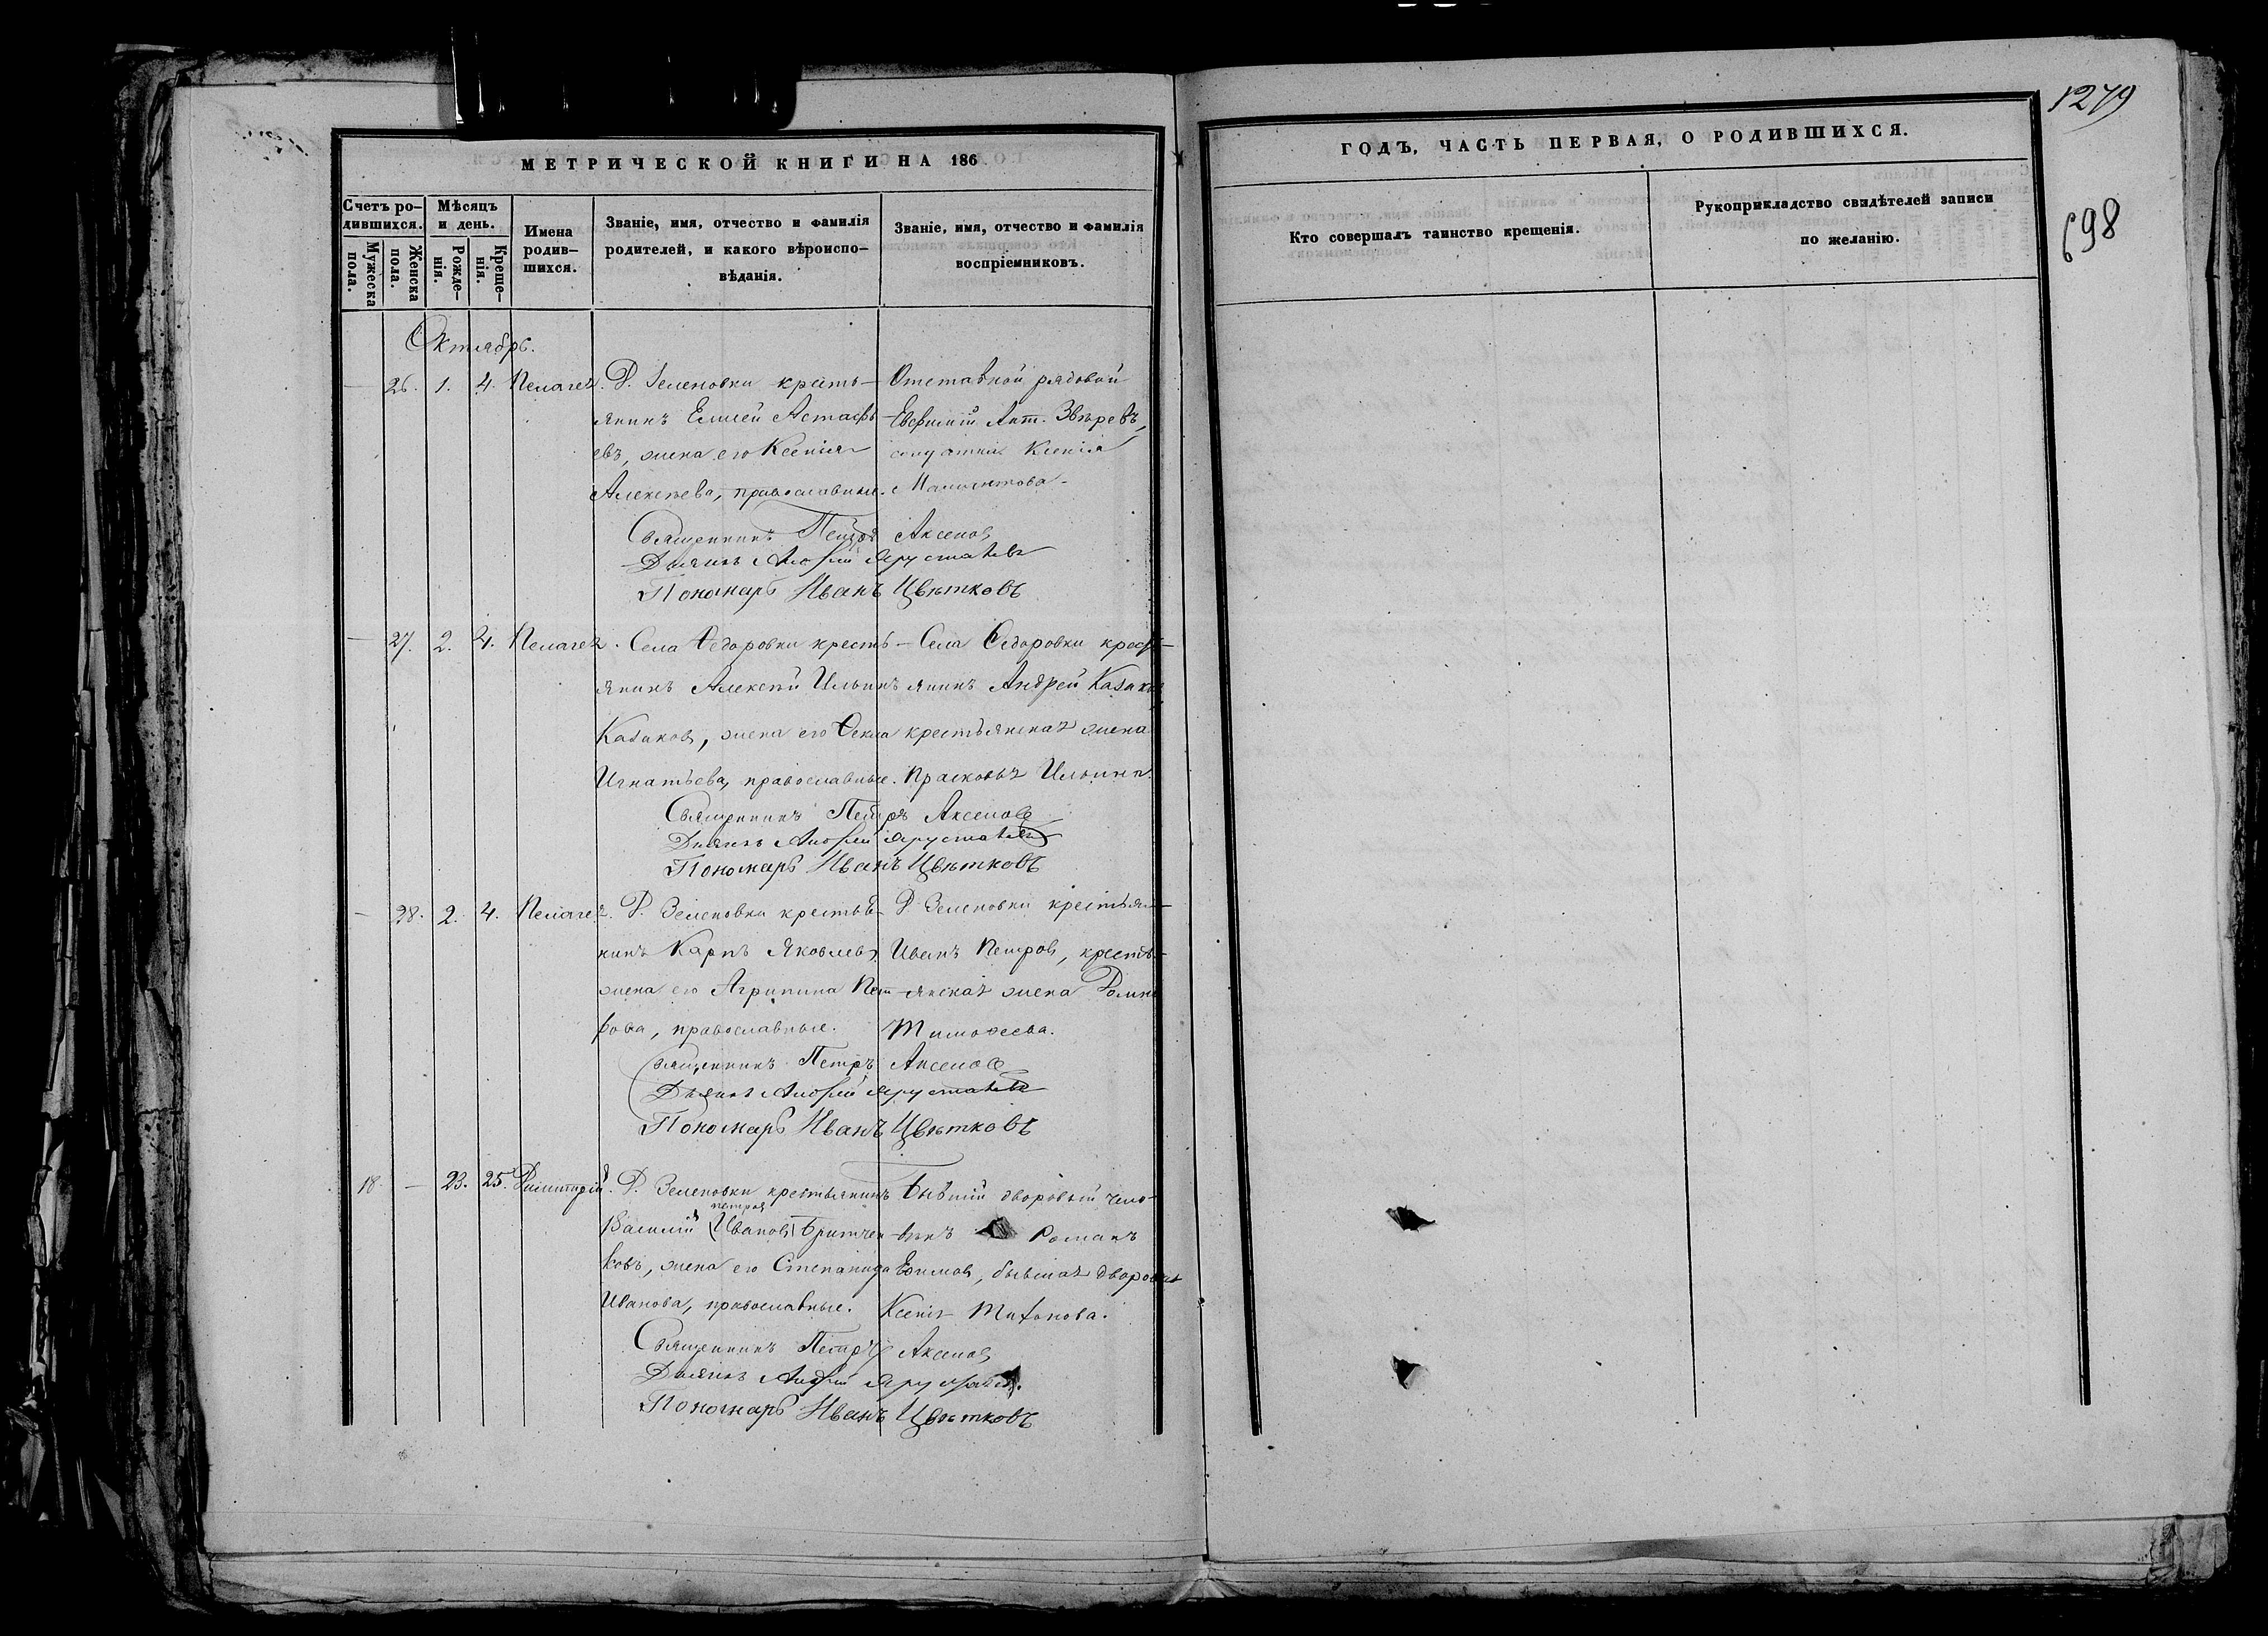 1279
698
МЕТРИЧЕСКОЙ КНИГИ НА 186
ГОДЪ, ЧАСТЬ ПЕРВАЯ, О РОДИВШИХСЯ.
Счетъ ро-
дившихся.
Мужеска
пола.
Женска
пола.
Мѣсяцъ
и день.
Рожде-
нія.
Креще-
нія.
Имена
родив-
шихся.
Званіе, имя, отчество и фамилія
родителей, и какого вѣроиспо-
вѣданія.
Званіе, имя, отчество и фамилія
воспріемниковъ.
Кто совершалъ таинство крещенія.
Рукоприкладство свидѣтелей записи
по желанію.
Октябрь.
— 26. 1. 4. Пелагея. Д. Зеленовки кресть-
янинъ Елисей Астафь-
евъ, жена его Ксенія
Алексѣева, православные.
Отставной рядовой
Евфимій Ант. Звѣревъ,
солдатка Ксенія
Мамонтова.
Священникъ Петръ Аксеновъ
Дьячекъ Андрей
Пономарь Иванъ Цвѣтковъ
— 27. 2. 4. Пелагея. Села Ѳедоровки кресть-
янинъ Алексѣй Ильинъ
Казаковъ, жена его Ѳекла
Игнатьева, православные.
Села Ѳедоровки кресть-
янинъ Андрей Казаковъ,
крестьянская жена
Прасковья Ильина.
Священникъ Петръ Аксеновъ
Дьячекъ Андрей
Пономарь Иванъ Цвѣтковъ
— 28. 2. 4. Пелагея. Д. Зеленовки крестья-
нинъ Карпъ Яковлевъ,
жена его Агрипина Пет-
рова, православные.
Д. Зеленовки крестьян-
Иванъ Петровъ, кресть-
янская жена Домна
Тимоѳеева.
Священникъ Петръ Аксеновъ
Дьячекъ Андрей
Пономарь Иванъ Цвѣтковъ
18. — 23. 25. Димитрій. Д. Зеленовки крестьянинъ
Петровъ
Василій (Ивановъ) Бритчен-
ковъ, жена его Степанида
Иванова, православные.
Бывшій дворовый чело-
вѣкъ Романъ
Ефимовъ, бывшая дворовая
Ксенія
Священникъ Петръ Аксеновъ
Дьячекъ Андрей
Пономарь Иванъ Цвѣтковъ